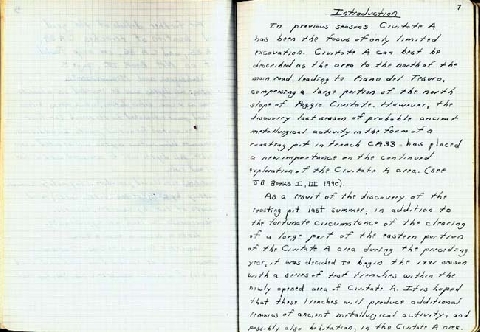 7
Introduction
In previous seasons Civitate A
has been the focus of only limited
excavation. Civitate A can best be
described as the area to the north of the
main road leading to Piano del Tesoro,
comprising a large portion of the north
slope of Poggio Civitate. However, the
discovery last season of probable ancient
metallurgical activity in the form of a
roasting pit in trench CA33 has placed
a new importance on the continued
exploration of the Civitate A area. (see
J.B. Books I, III 1990)
As a result of the discovery of the
roasting pit last summer, in addition to
the fortunate circumstance of the clearing
of a large part of the eastern portions
of the Civitate A area during the preceding
year, it was decided to begin the season
with a series of test trenches within the
newly opened area of Civitate A. It is hoped
that these trenches will produce additional
traces of ancient metallurgical activity, and
possibly also habitation, in the Civitate A area.